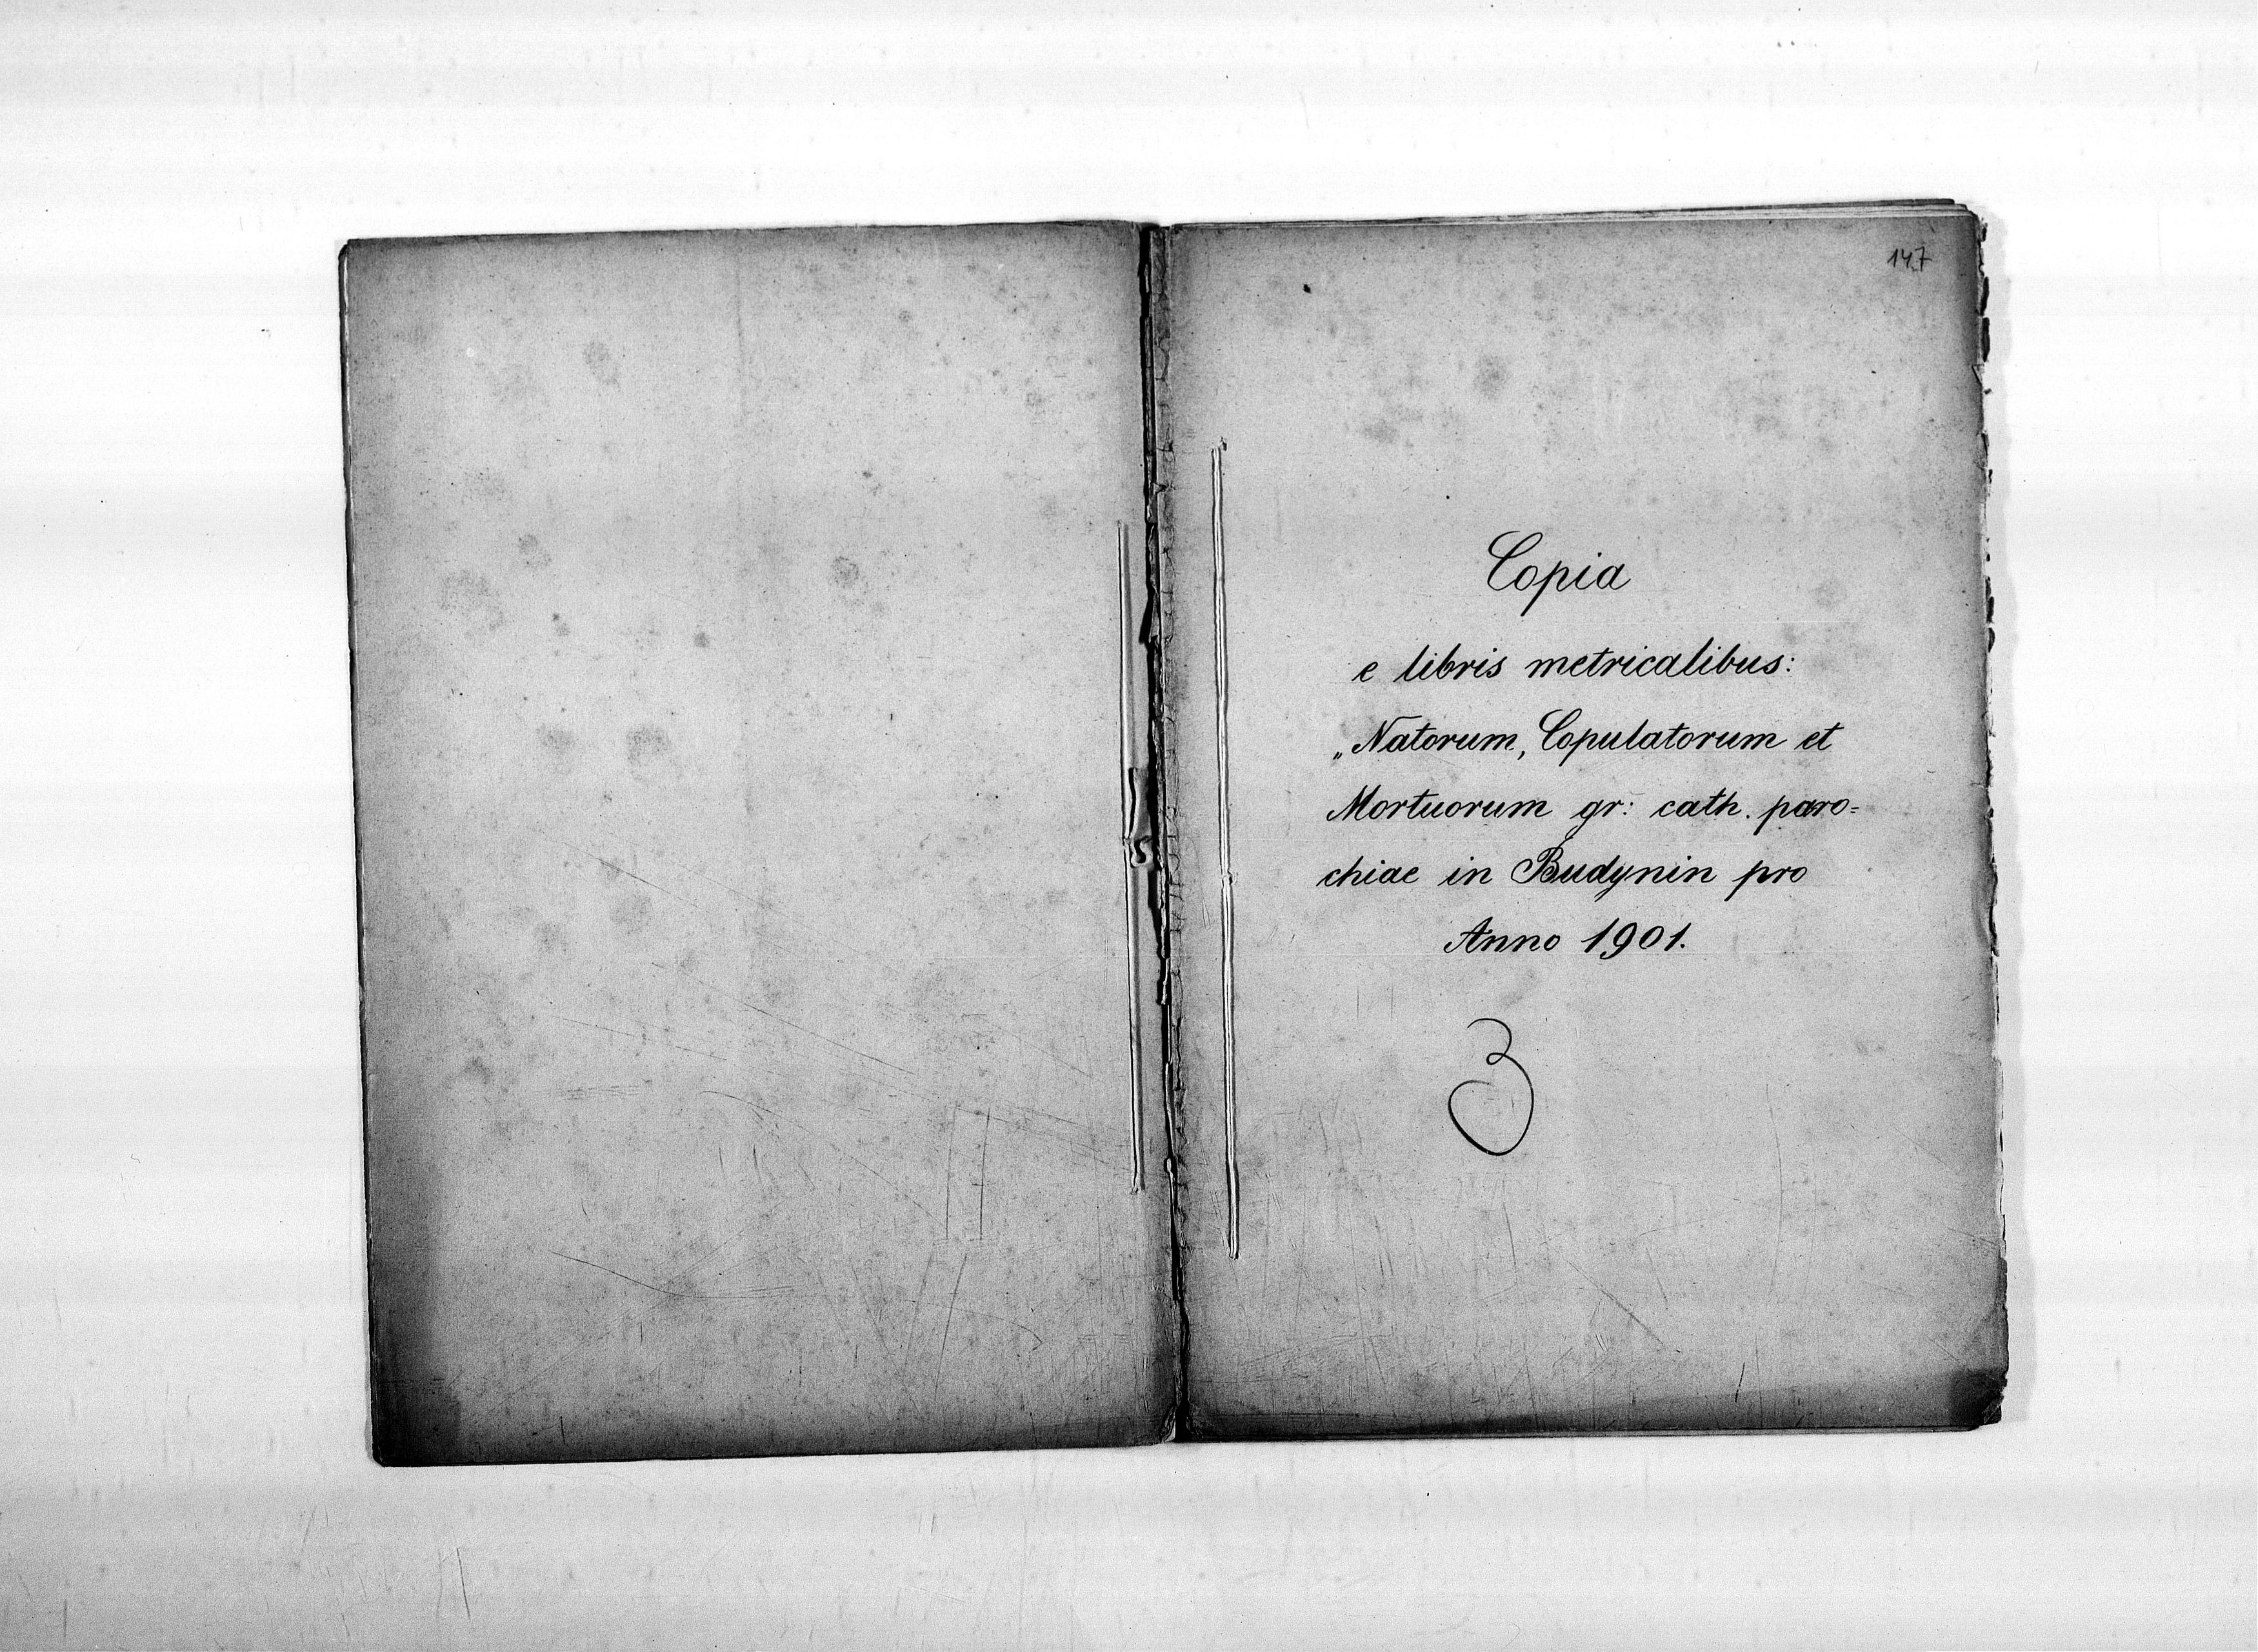 147
Copia
e libris metricalibus:
„Natorum, Copulatorum et
Mortuorum gr: cath. paro=
chiae in Budynin pro
Anno 1901.
3